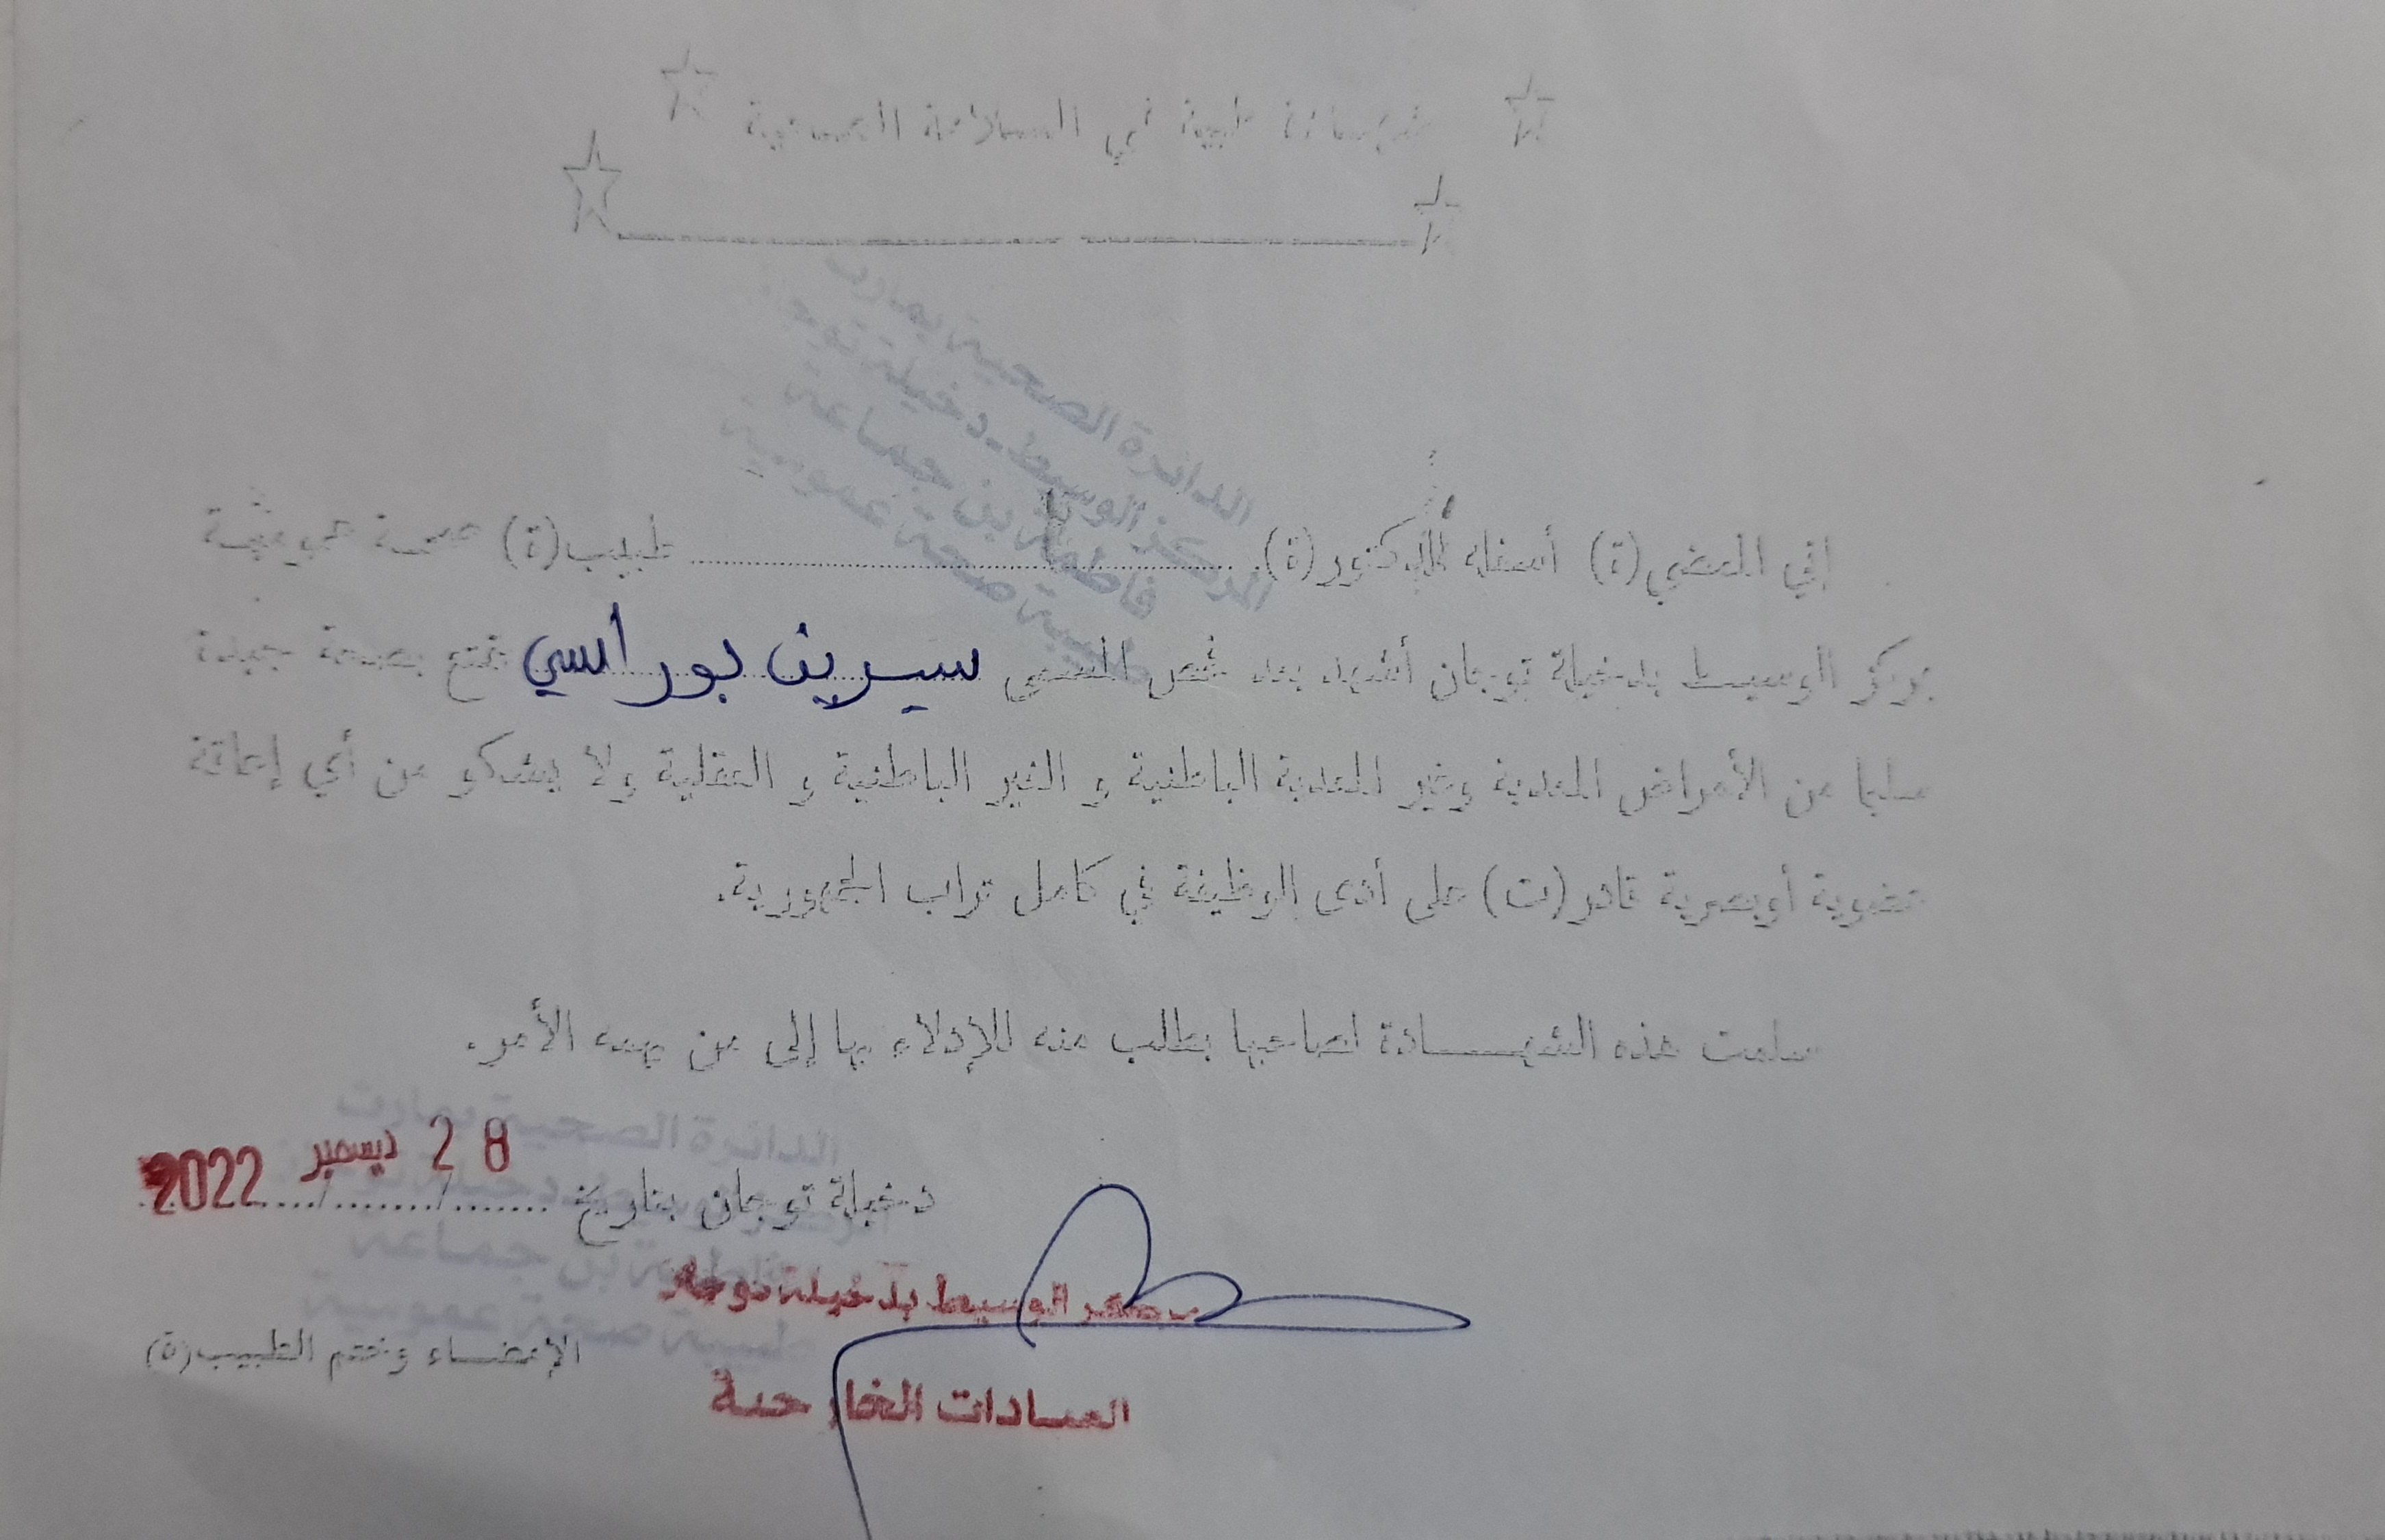 شهادة طبية في السلامة الصحية
الدائرة الصحية بمارث
المركز الوسيط - دخيلة توجان
فاطمة بن جماعة
طبيبة صحة عمومية
إني الممضي(ة) أسفله الدكتور(ة)............ طبيب(ة) صحة عموميّة
بمركز الوسيط بدخيلة توجان أشهد بعد فحص المسمى سيرين بوراسي تمتع بصحة جيدة
سليما من الأمراض المعدية وغير المعدية الباطنية و الغير الباطنية و العقلية ولا يشكو من أي إعاقة
عضوية أوبصرية قادر(ت) على أدى الوظيفة في كامل تراب الجمهورية.
سلمت هذه الشهـــــادة لصاحبها بطلب منه للإدلاء بها إلى من يهمه الأمر.
دخيلة توجان بتاريخ 28 ديسمبر 2022
الدائرة الصحية بمارث
بن جماعة
طبيبة صحة عمومية
الوسيط بدخيلة توجان
الإمضــاء وختم الطبيب(ة)
العيادات الخارجية